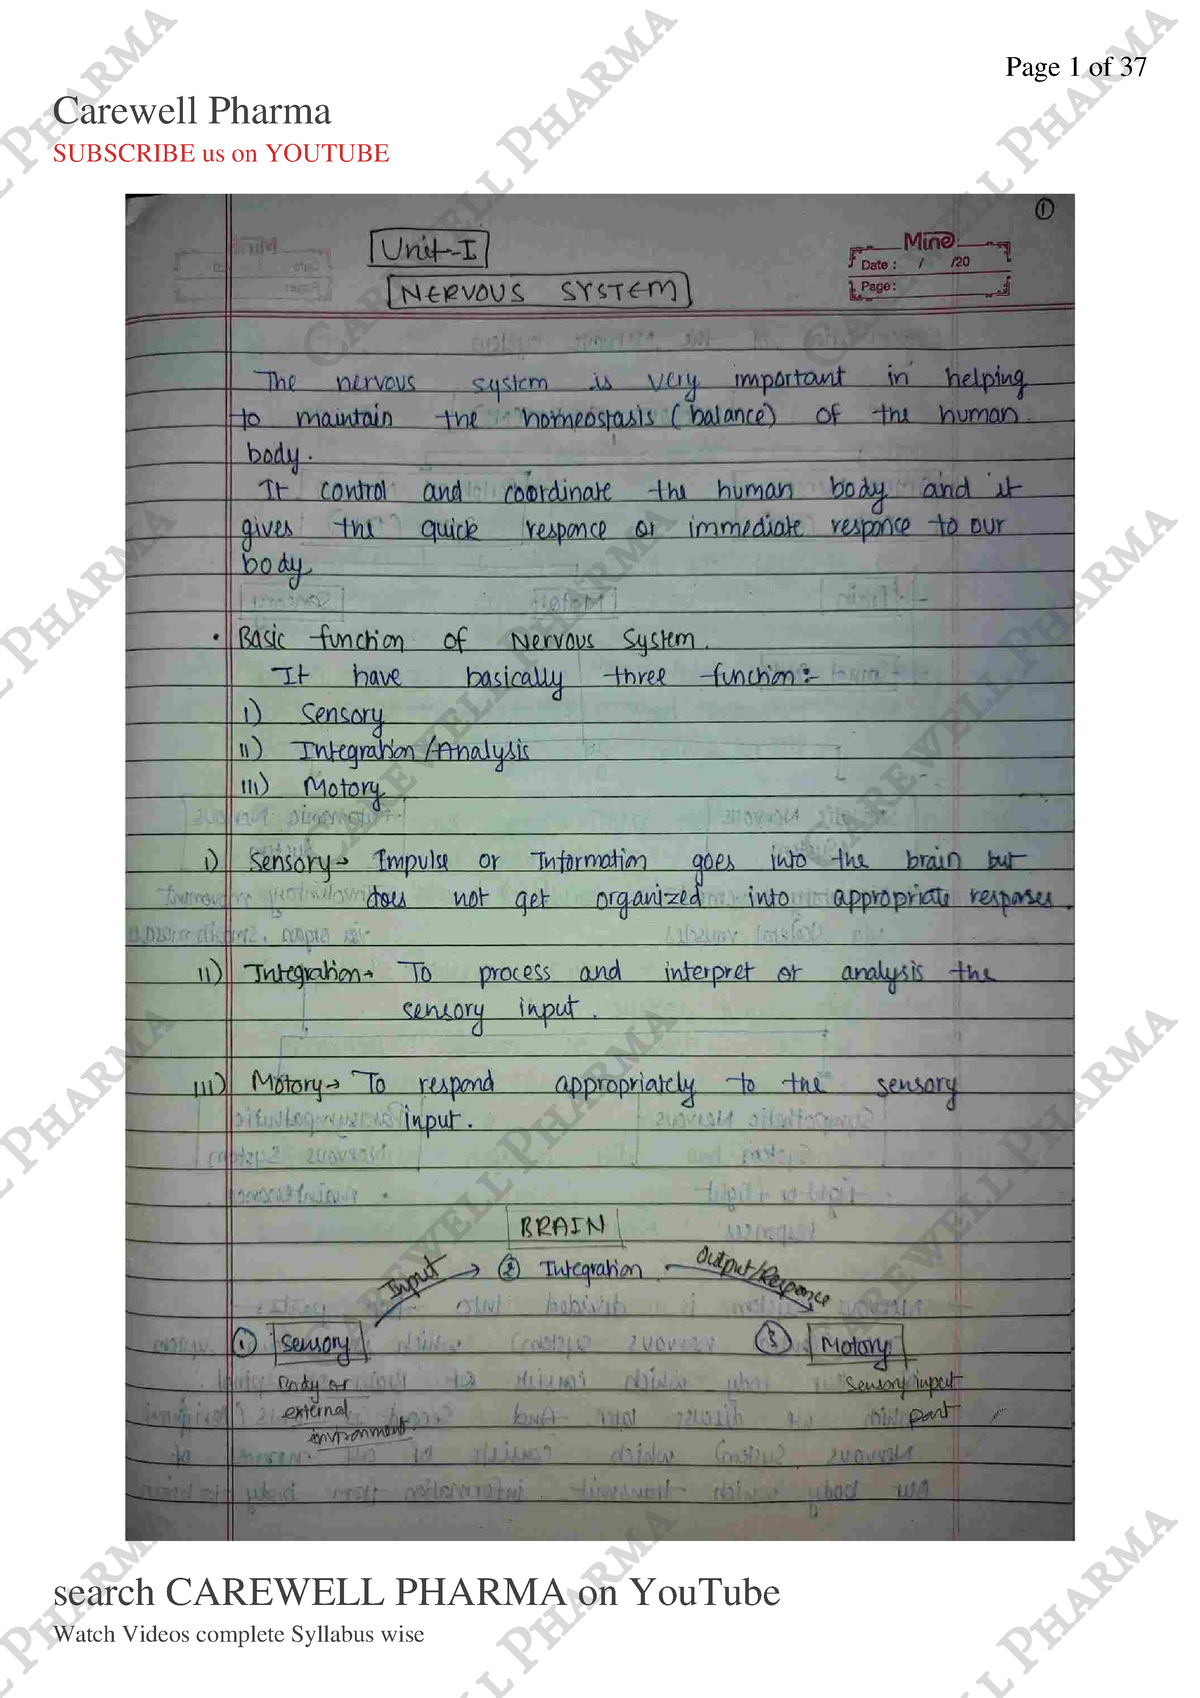 Page 1 of 37
Carewell Pharma
SUBSCRIBE us on YOUTUBE
1
Unit-I
Mine
Date : / /20
Page:
NERVOUS SYSTEM
The nervous system is very important in helping
to maintain the homeostasis (balance) of the human
body.
It control and coordinate the human body and it
gives the quick responce or immediate responce to our
body
• Basic function of Nervous System.
It have basically three function:-
i) Sensory
ii) Integration/Analysis
iii) Motory
i) Sensory→ Impulse or Information goes into the brain but
does not get organized into appropriate responses.
ii) Integration→ To process and interpret or analysis the
sensory input.
iii) Motory→ To respond appropriately to the sensory
input.
BRAIN
Input → 2 Integration Output/Responce
1 Sensory 3 Motory
Body or Sensory input
external part
environment.
search CAREWELL PHARMA on YouTube
Watch Videos complete Syllabus wise
CAREWELL PHARMA